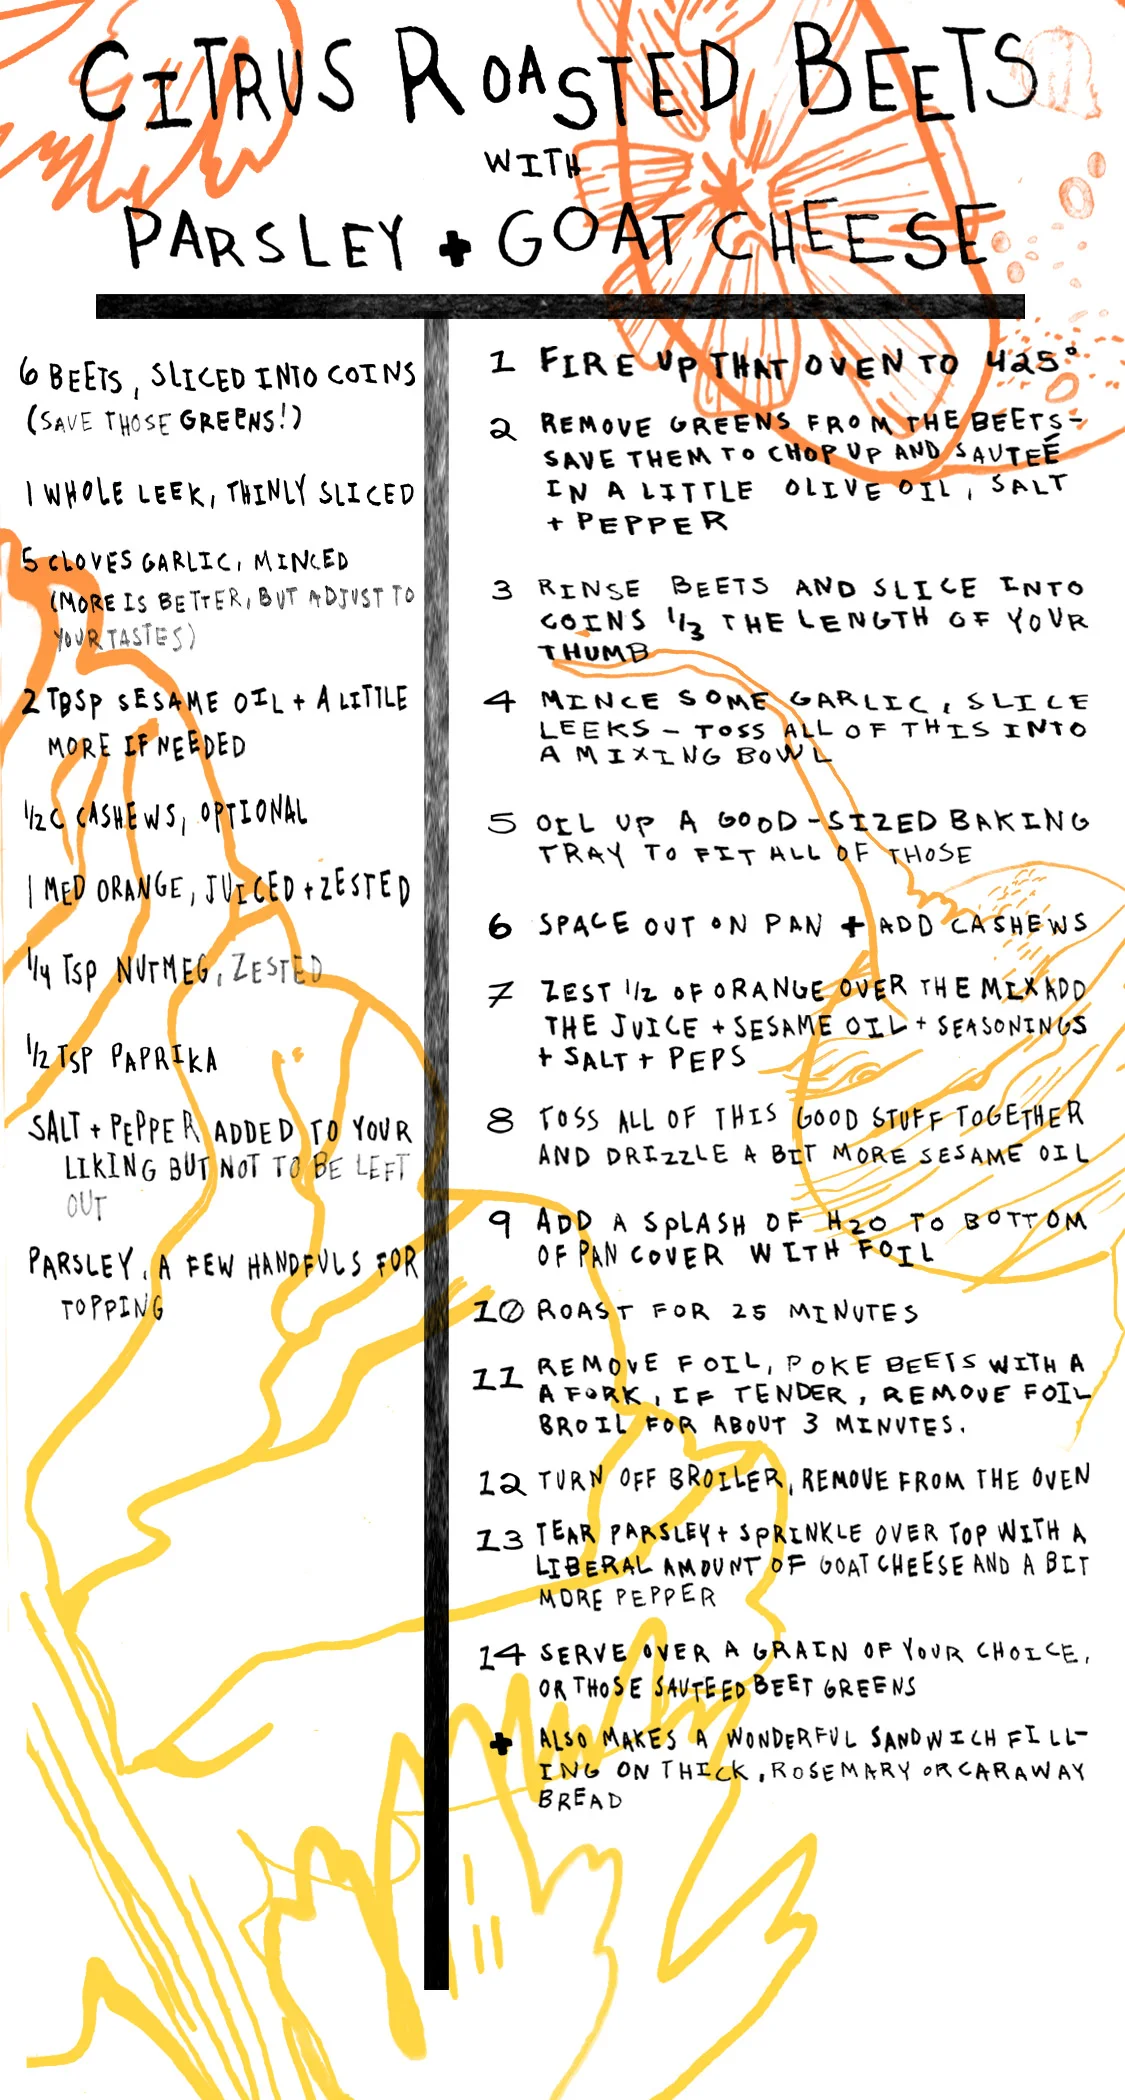 CITRUS ROASTED BEETS
WITH
PARSLEY + GOAT CHEESE
6 BEETS, SLICED INTO COINS
(SAVE THOSE GREENS!)
1 WHOLE LEEK, THINLY SLICED
5 CLOVES GARLIC, MINCED
(MORE IS BETTER, BUT ADJUST TO
YOUR TASTES)
2 TBSP SESAME OIL + A LITTLE
MORE IF NEEDED
1/2 C CASHEWS, OPTIONAL
1 MED ORANGE, JUICED + ZESTED
1/4 TSP NUTMEG, ZESTED
1/2 TSP PAPRIKA
SALT + PEPPER ADDED TO YOUR
LIKING BUT NOT TO BE LEFT
OUT
PARSLEY, A FEW HANDFULS FOR
TOPPING
1 FIRE UP THAT OVEN TO 425°
2 REMOVE GREENS FROM THE BEETS-
SAVE THEM TO CHOP UP AND SAUTEÉ
IN A LITTLE OLIVE OIL, SALT
+ PEPPER
3 RINSE BEETS AND SLICE INTO
COINS 1/3 THE LENGTH OF YOUR
THUMB
4 MINCE SOME GARLIC, SLICE
LEEKS - TOSS ALL OF THIS INTO
A MIXING BOWL
5 OIL UP A GOOD-SIZED BAKING
TRAY TO FIT ALL OF THOSE
6 SPACE OUT ON PAN + ADD CASHEWS
7 ZEST 1/2 OF ORANGE OVER THE MIX ADD
THE JUICE + SESAME OIL + SEASONINGS
+ SALT + PEPS
8 TOSS ALL OF THIS GOOD STUFF TOGETHER
AND DRIZZLE A BIT MORE SESAME OIL
9 ADD A SPLASH OF H2O TO BOTTOM
OF PAN COVER WITH FOIL
10 ROAST FOR 25 MINUTES
11 REMOVE FOIL, POKE BEETS WITH A
A FORK, IF TENDER, REMOVE FOIL
BROIL FOR ABOUT 3 MINUTES.
12 TURN OFF BROILER, REMOVE FROM THE OVEN
13 TEAR PARSLEY + SPRINKLE OVER TOP WITH A
LIBERAL AMOUNT OF GOAT CHEESE AND A BIT
MORE PEPPER
14 SERVE OVER A GRAIN OF YOUR CHOICE,
OR THOSE SAUTEED BEET GREENS
+ ALSO MAKES A WONDERFUL SANDWICH FILL-
ING ON THICK, ROSEMARY OR CARAWAY
BREAD